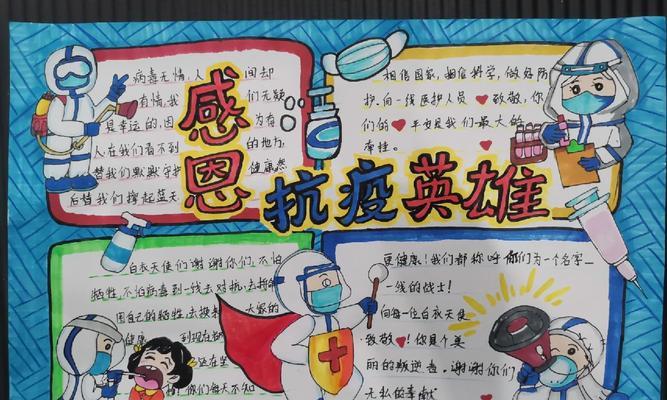 感恩
抗疫英雄
病毒无情,人 间却
有情,我 们无疑
是幸运的,因 为有
人在我们看不到 的地方
替我们默默守护 健康
后替我们撑起蓝天
相信国家,相信科学,做好防
护,向一线医护人员 致敬,你
们的 平安是我们最大的
牵挂。
白衣天使们谢谢你们,不怕
牺牲,不怕病毒到一线去对抗,去
用自己的牺牲,去换 大家的
健康 到现在
还在坚
你们每天不知
更健康!我们都称呼你们为一个名字
一线的战士!
向每一位白衣天使
致敬 !你真是美
丽的叛逆者。谢谢你们
无私的奉献